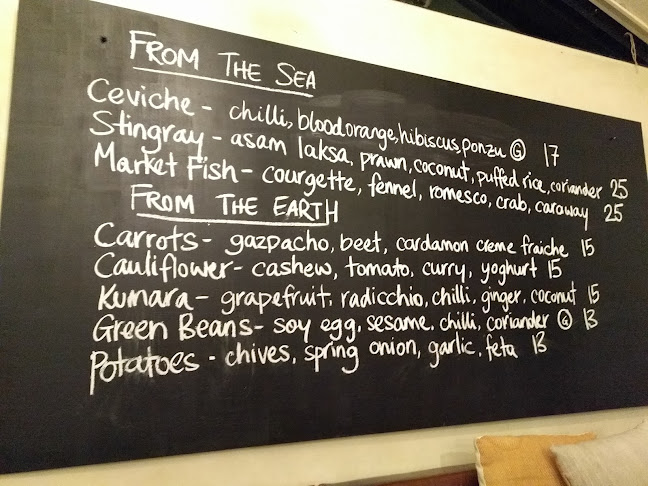 FROM THE SEA
Ceviche - chilli, bloodorange, hibiscus, ponzu Ⓖ 17
Stingray - asam laksa, prawn, coconut, puffed rice, coriander 25
Market Fish - courgette, fennel, romesco, crab, caraway 25
FROM THE EARTH
Carrots - gazpacho, beet, cardamon creme fraiche 15
Cauliflower - cashew, tomato, curry, yoghurt 15
Kumara - grapefruit, radicchio, chilli, ginger, coconut 15
Green Beans - soy egg, sesame, chilli, coriander Ⓖ 13
Potatoes - chives, spring onion, garlic, feta 13